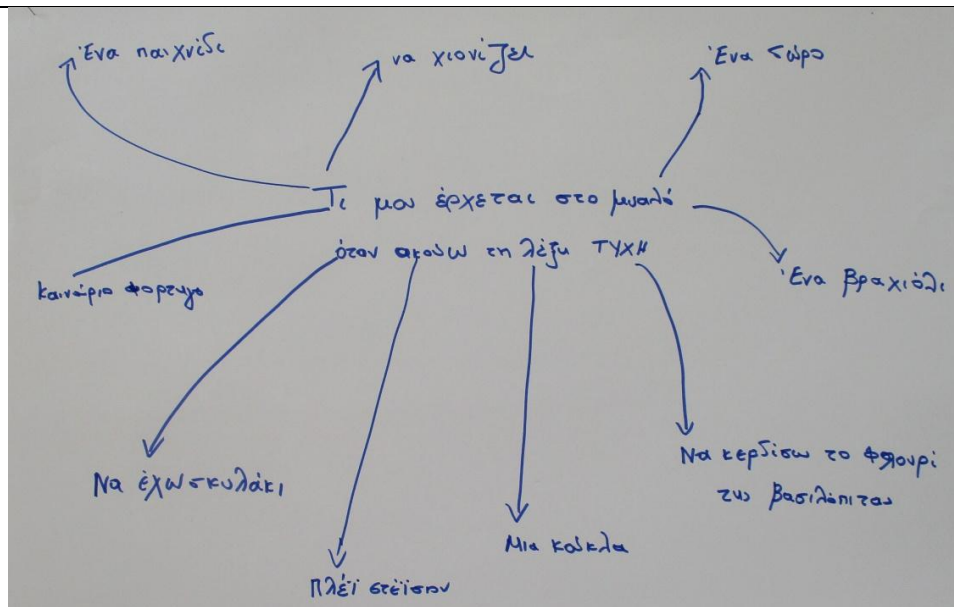 Ένα παιχνίδι
να χιονίζει
Ένα δώρο
Τι μου έρχεται στο μυαλό
όταν ακούω τη λέξη ΤΥΧΗ
καινούριο φορτηγό
Ένα βραχιόλι
Να έχω σκυλάκι
Να κερδίσω το φλουρί
της βασιλόπιτας
Μια κούκλα
Πλέϊ στέϊσον